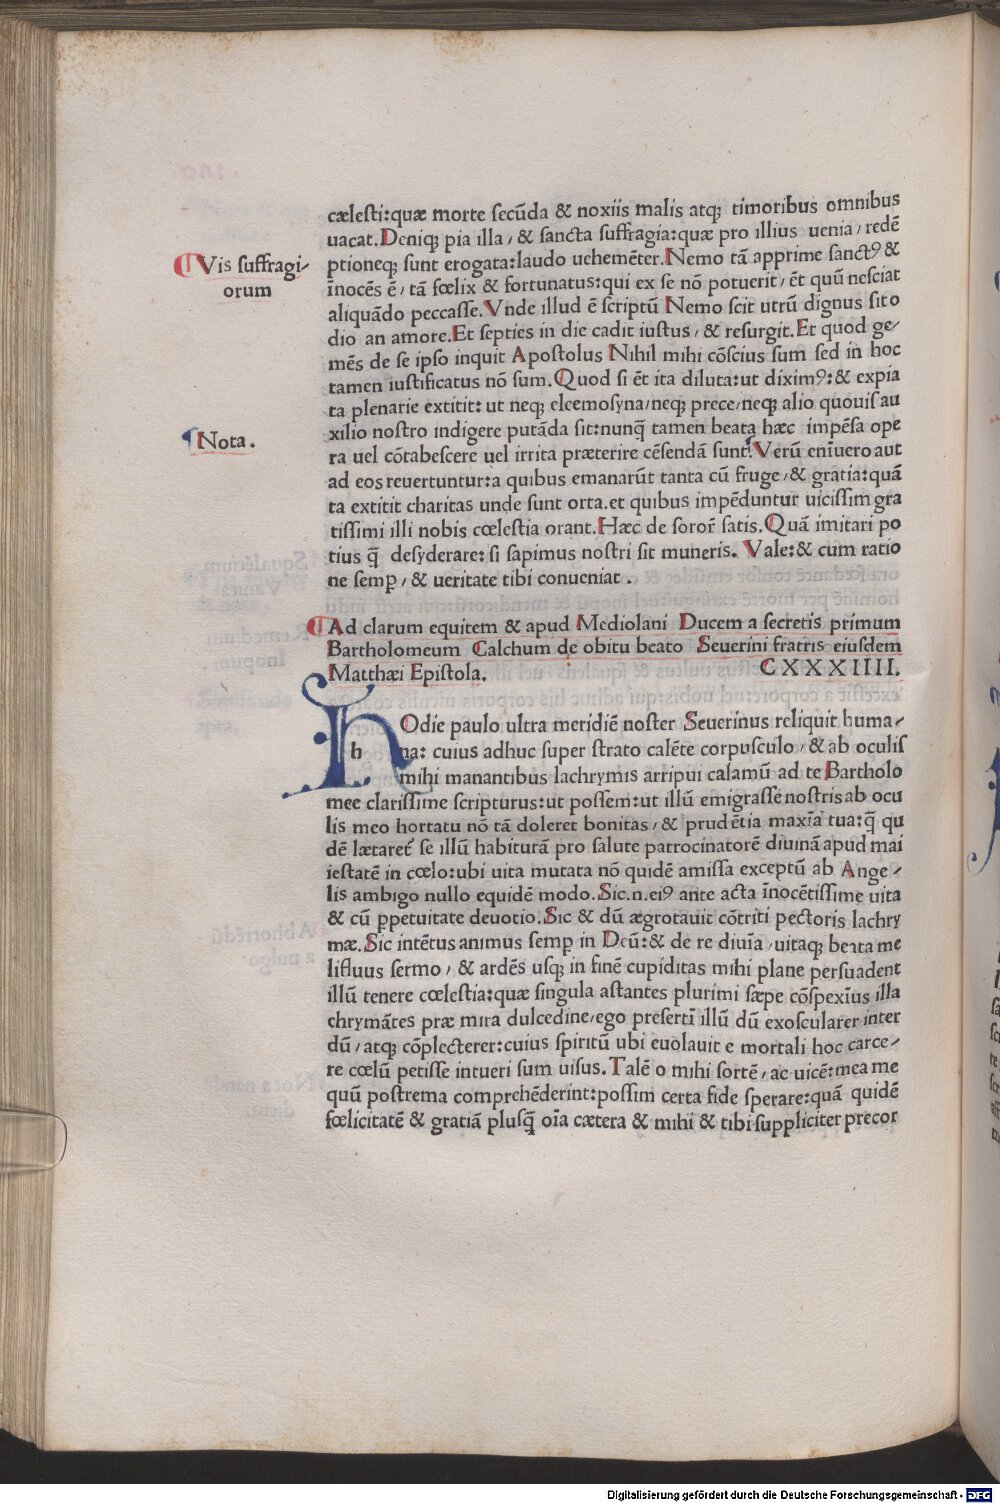 cælesti:quæ morte secūda & noxiis malis atq; timoribus omnibus
uacat.Deniq; pia illa/& sancta suffragia:quæ pro illius uenia/redē
Vis suffragi/
orum
ptioneq; sunt erogata:laudo uehemēter.Nemo tā apprime sanctꝰ &
īnocēs ē/tā fœlix & fortunatus:qui ex se nō potuerit/ēt quū nesciat
aliquādo peccasse.Vnde illud ē scriptū Nemo scit utrū dignus sit o
dio an amore.Et septies in die cadit iustus/& resurgit.Et quod ge/
mēs de se ipso inquit Apostolus Nihil mihi cōscius sum sed in hoc
tamen iustificatus nō sum.Quod si ēt ita diluta:ut diximꝰ:& expia
ta plenarie extitit:ut neq; elcemosyna/neq; prece/neq; alio quouis au
Nota.
xilio nostro indigere putāda sit:nunq̄ tamen beata hæc impēsa ope
ra uel cōtabescere uel irrita præterire cēsendā sunt.Verū enīuero aut
ad eos reuertuntur:a quibus emanarūt tanta cū fruge/& gratia:quā
ta extitit charitas unde sunt orta.et quibus impēduntur uicissim gra
tissimi illi nobis cœlestia orant.Hæc de soror̄ satis.Quā imitari po
tius q̄ desyderare:si sapimus nostri sit muneris. Vale:& cum ratio
ne semꝑ/& ueritate tibi conueniat.
Ad clarum equitem & apud Mediolani Ducem a secretis primum
Bartholomeum Calchum de obitu beato Seuerini fratris eiusdem
Matthæi Epistola. CXXXIIII.
h
Odie paulo ultra meridiē noster Seuerinus reliquit huma/
na: cuius adhuc super strato calēte corpusculo/& ab oculis
mihi manantibus lachrymis arripui calamū ad te Bartholo
mee clarissime scripturus:ut possem:ut illū emigrasse nostris ab ocu
lis meo hortatu nō tā doleret bonitas/& prudētia maxīa tua:q̄ qu
dē lætaret̄ se illū habiturā pro salute patrocinatorē diuinā apud mai
iestatē in cœlo:ubi uita mutata nō quidē amissa exceptū ab Ange/
lis ambigo nullo equidē modo.Sic.n.eiꝰ ante acta īnocētissime uita
& cū ꝑpetuitate deuotio.Sic & dū ægrotauit cōtriti pectoris lachry
mæ.Sic intētus animus semꝑ in Deū:& de re diuīa/uitaq; beata me
lifluus sermo/& ardēs usq; in finē cupiditas mihi plane persuadent
illū tenere cœlestia:quæ singula astantes plurimi sæpe cōspexīus illa
chrymātes præ mira dulcedine/ego presertī illū dū exoscularer inter
dū/atq; cōplecterer:cuius spiritū ubi euolauit e mortali hoc carce/
re cœlū petisse intueri sum uisus.Talē o mihi sortē/ac uicē:mea me
quū postrema comprehēderint:possim certa fide sperare:quā quidē
fœlicitatē & gratiā plusq̄ oīa cætera & mihi & tibi suppliciter precor
Digitalisierung gefördert durch die Deutsche Forschungsgemeinschaft - DFG